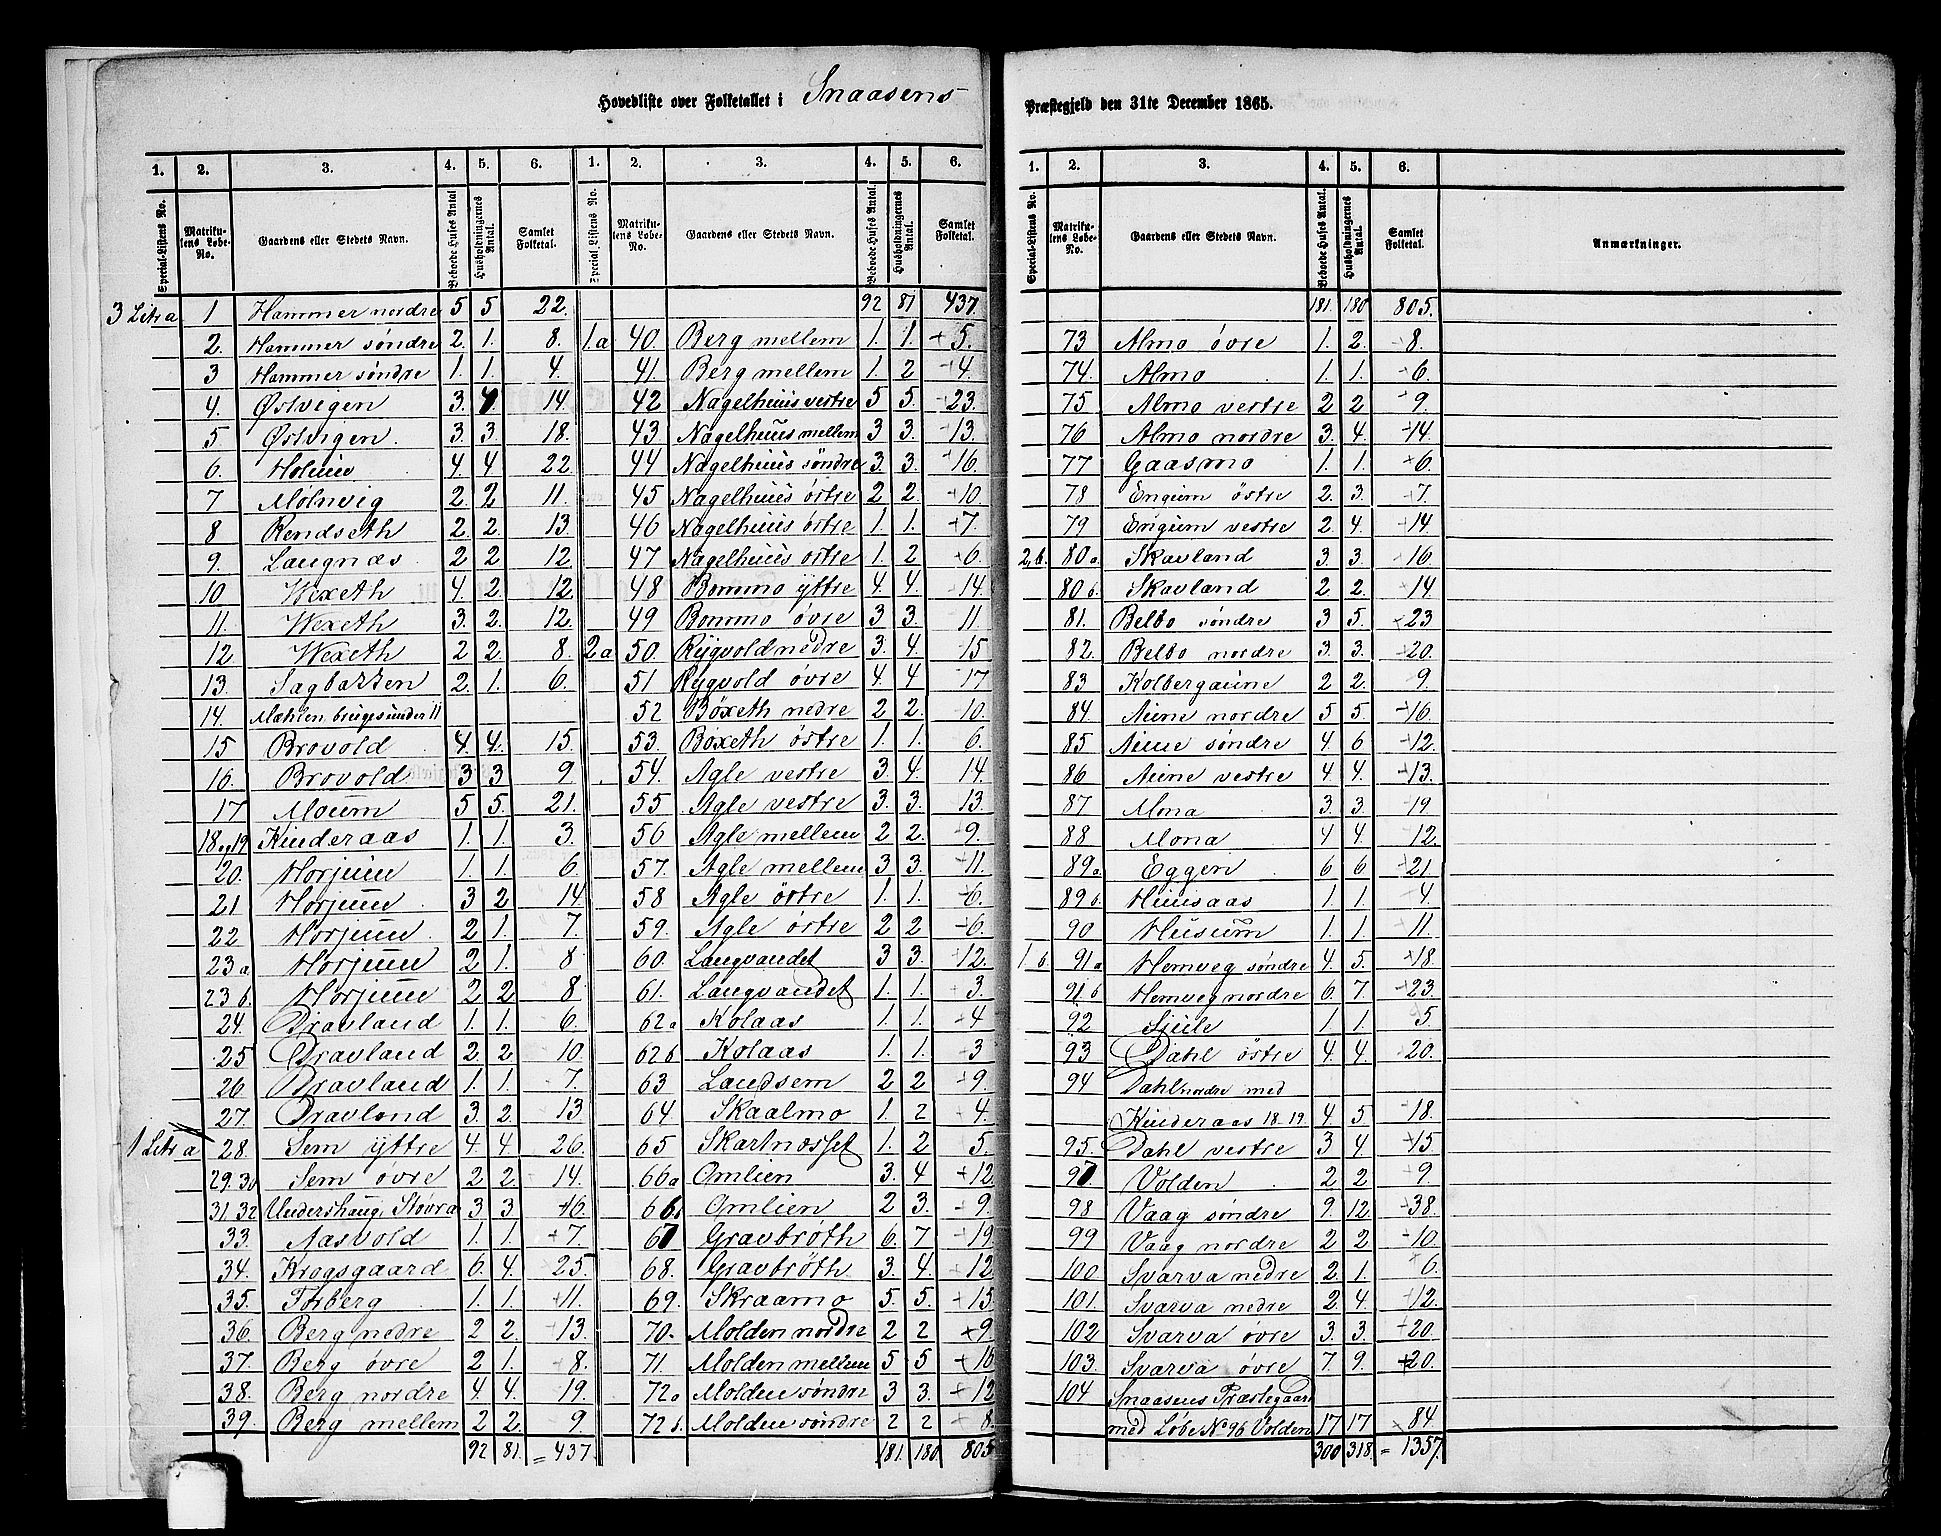 Hovedliste over Folketallet i Snaasens Præstegjeld den 31te December 1865.
1. 2. 3. 4. 5. 6. 1. 2. 3. 4. 5. 6.
Special-Listens No. Matrikulens Løbe-No. Gaardens eller Stedets Navn. Beboede Huses Antal Husholdningernes Antal. Samlet Folketal. Special-Listens No. Matrikulens Løbe-No. Gaardens eller Stedets Navn. Beboede Huses Antal. Husholdningernes Antal. Samlet Folketal.
3 Litr a 1 Hammer nordre 5 5 22.
2. Hammer søndre 2. 1. 8.
3 Hammer søndre 1. 1. 4.
4. Østvegen 3. 4. 14.
5. Østvigen. 3. 3. 18.
6. Holum 4. 4 22
7 Mølnvig 2. 2 11.
8 Rendseth 2. 2. 13.
9. Langnæs. 2 2 12.
10 Wexeth 4. 2 12.
11. Wexeth 3. 2. 12.
12 Wexeth 2 2. 8.
13. Sagbakken 2. 1. 6.
14. Mæhlen, bruges under 11
15 Brovold 4. 4. 15.
16. Brovold. 3 3 9.
17 Moum 5 5. 21.
18 og 19 Kinderaas 1. 1. 3.
20. Horjum 1. 1. 6.
21 Horjum 3 2 14
22 Horjum 2 1. 7.
23 a Horjum 2 1. 8
23 b. Horjum 2 2 8.
24. Dravland 1. 1. 6.
25 Dravland 2 2 10.
26 Dravland 1. 1. 7.
27. Dravland 3. 2. 13
1 Litr a 28. Sem yttre 4. 4 26.
29. 30 Sem øvre 2 2. 14.
31. 32 Undershaug, Støvra 3 3 +6.
33. Aasvold 1. 1. +7
34. Krogsgaard 6. 4. 25.
35. Forberg 1. 1. 11.
36. Berg nedre 2 2. 13.
37. Berg øvre 2 1. 8.
38. Berg nordre 4. 4. 19.
39. Berg mellem 2 2. 9.
92 81. = 437.
92 81 437.
1.a 40. Berg mellem 1. 1. +5.
41. Berg mellem 1. 2 4.
42 Nagelhuus vestre 5 5. 23.
43 Nagelhuus mellem 3 3. 13.
44 Nagelhuus søndre 3. 3. 16.
45 Nagelhuus østre 2 2. 10.
46 Nagelhuus østre 1. 1. +7.
47 Nagelhuus østre 1. 2 6.
48 Bommo yttre 4. 4. 14.
49 Bommo øvre 3 3. 11.
2 a 50. Rygvold nedre 3. 4. 15
51 Rygvold øvre 4. 4 17
52 Böxeth nedre 2 2. 10.
53. Boxeth östre 1. 1. 6.
54. Agle vestre 3. 4. 14.
55 Agle vestre 3. 3. 13.
56 Agle mellem 2 2. 9.
57. Agle mellem 3 3. 11.
58 Agle östre 1. 1. 6.
59. Agle östre 2 2 6.
60. Langvandet 3 3. 12.
61. Langvandet 1. 1. 3.
62 a Kolaas 1. 1. +4
62 b Kolaas 1. 1. 3
63 Landsem 2 2 +9.
64. Skaalmo 1. 2 4.
65 Skartnæsset 1. 2 5.
66 a Omlien 3. 4 +12
66. b Omlien 2 3. 9.
67 Gravbrøth 6. 7 19.
68. Gravbröth 3. 4. +12
69. Skraamo 5. 5. 15
70. Molden nordre 2 2 +9.
71. Molden mellem 5 5 +16
72 a Molden søndre 3 3. +12
72 b. Molden søndre 2 2 8.
181. 180. 805
1. 2. 3. 4. 5. 6.
Special-Listens No. Matrikulens Løbe-No. Gaardens eller Stedets Navn. Beboede Huses Antal. Husholdningernes Antal. Samlet Folketal. Anmærkninger.
181. 180 805.
73 Almo øvre 1. 2. 8.
74. Almo 1. 1. 6.
75 Almo vestre 2 2 9.
76 Almo nordre 3. 4. 14.
77 Gaasmo 1. 1. 6.
78 Engum östre 2. 3. 7.
79 Engum vestre 2. 4. 14.
2, b. 80 a. Skavland 3. 3. 16.
80 b. Skavland 2 2. 14.
81. Belbo søndre 3 5. 23
82. Belbo nordre 3. 3. 20.
83 Kolbergaune 2 2. 9.
84. Aune nordre 5 5. 16.
85 Aune søndre 4. 6 12.
86 Aune vestre 4. 4. 13.
87 Mona 3. 3. 19
88 Mona 4 4. 12.
89 a Eggen 6 6 21.
89 b. Huusaas 1. 1. 4.
90 Husum 1. 1. 11.
1 b. 91 a Hemveg søndre 4. 5. 18.
91 b Hemveg nordre 6. 7. 23.
92 Sjule 1. 1. 5.
93 Dahl östre 4. 4. 20.
94 Dahl nordre med
Kinderaas 18. 19. 4. 5 18.
95. Dahl vestre 3 4. 15.
97 Volden 2 2 9.
98 Vaag søndre 9. 12. 38.
99 Vaag nordre 2 2 10.
100 Svarva nedre 2 1. 6.
101. Svarva nedre 2. 4. 12.
102 Svarva øvre 3. 3. 20.
103. Svarva øvre 7. 9. +20.
104 Snaasens Præstegaard
med Løbe No 96 Volden 17 17 84
300 318 = 1357.